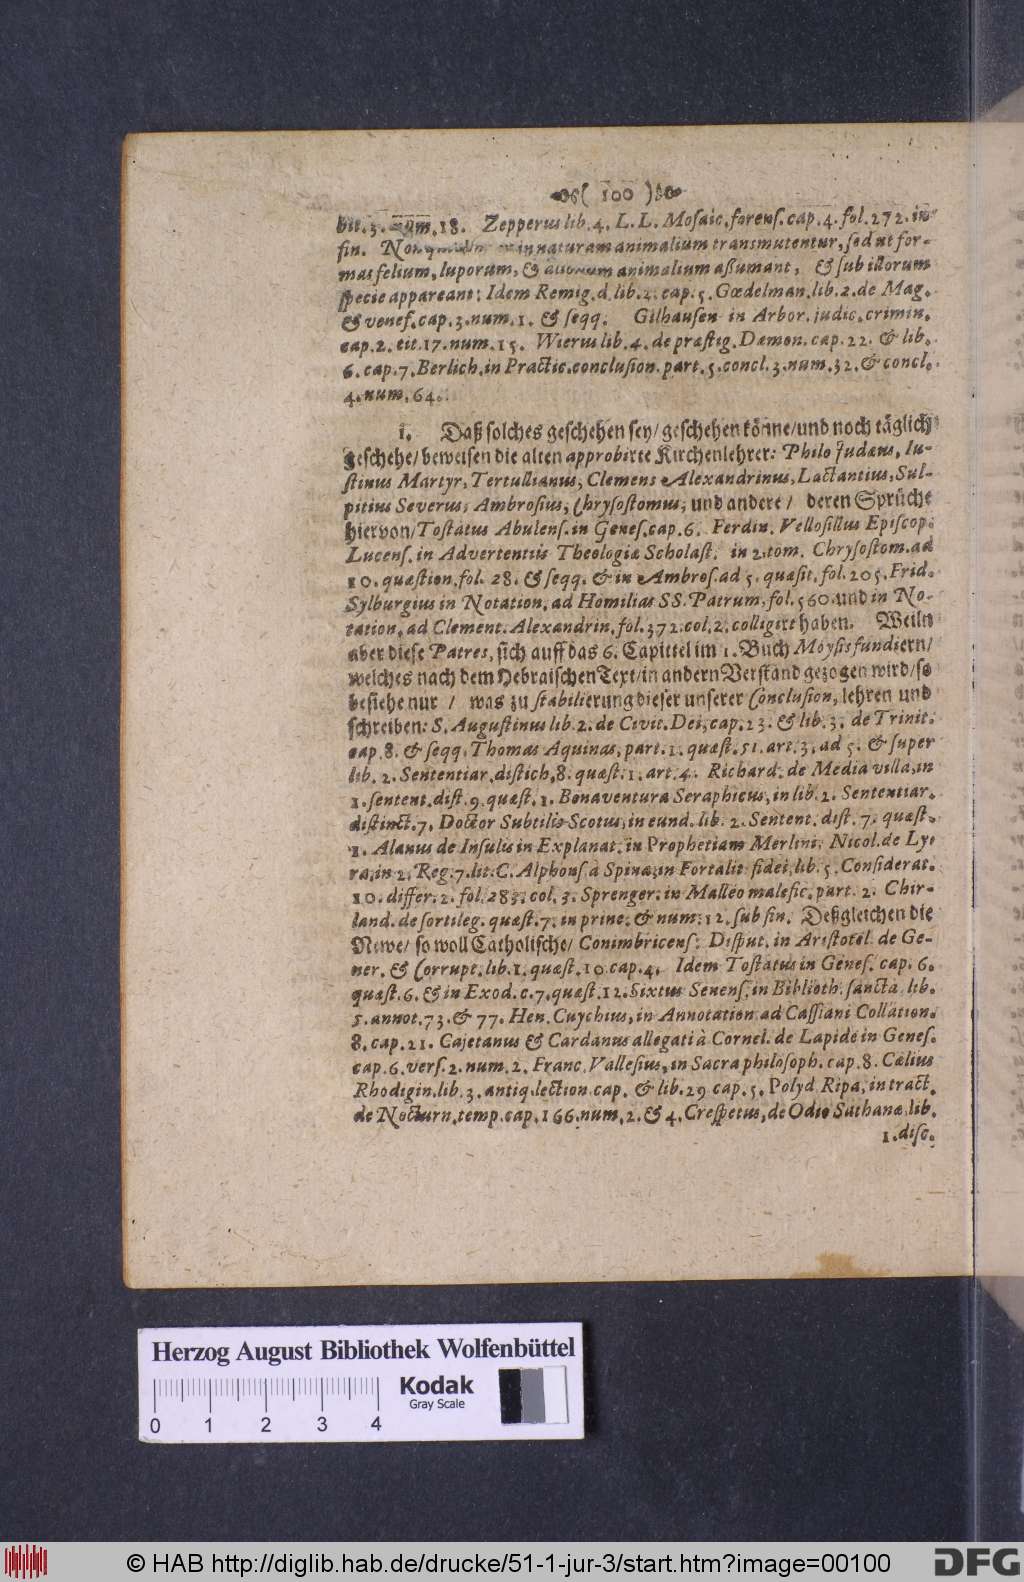 ( 100 )
bit. 3. num. 18. Zepperus lib. 4. L. L. Mosaic. forens. cap. 4. fol. 272. in
fin. in naturam animalium transmutentur, sed ut for-
mas felium, luporum, & aliorum animalium aßumant, & sub illorum
specie appareant: Idem Remig. d. lib. 2. cap. 5. Gœdelman. lib. 2. de Mag.
& venef. cap. 3. num. 1. & seqq. Gilhausen in Arbor. judic. crimin.
cap. 2. tit. 17. num. 15. Wierus lib. 4. de præstig. Dæmon. cap. 22. & lib.
6. cap. 7. Berlich. in Practic. conclusion. part. 5. concl. 3. num. 32. & concl.
4. num. 64.
1. Daß solches geschehen sey/ geschehen könne/ und noch täglich
geschehe/ beweisen die alten approbirte Kirchenlehrer: Philo Judæus, Iu-
stinus Martyr, Tertullianus, Clemens Alexandrinus, Lactantius, Sul-
pitius Severus, Ambrosius, Chrysostomus, und andere/ deren Sprüche
hiervon/ Tostatus Abulens. in Genes. cap. 6. Ferdin. Vellosillus Episcop.
Lucens. in Advertentiis Theologiæ Scholast. in 2. tom. Chrysostom. ad
10. quæstion. fol. 28. & seqq. & in Ambros. ad 5. quæsit. fol. 205. Frid.
Sylburgius in Notation. ad Homilias SS. Patrum, fol. 560. und in No-
tation. ad Clement. Alexandrin. fol. 372. col. 2. colligirt haben. Weiln
aber diese Patres, sich auff das 6. Capittel im 1. Buch Moysis fundiern/
welches nach dem Hebraischen Text/ in andern Verstand gezogen wird/ so
besiehe nur / was zu stabilierung dieser unserer Conclusion, lehren und
schreiben: S. Augustinus lib. 2. de Civit. Dei, cap. 23. & lib. 3. de Trinit.
cap. 8. & seqq. Thomas Aquinas, part. 1. quæst. 51. art. 3. ad 5. & super
lib. 2. Sententiar. distich. 8. quæst. 1. art. 4. Richard. de Media villa, in
1. sentent. dist. 9. quæst. 1. Bonaventura Seraphicus, in lib. 2. Sententiar.
distinct. 7. Doctor Subtilis Scotus, in eund. lib. 2. Sentent. dist. 7. quæst.
1. Alanus de Insulis in Explanat. in Prophetiam Merlini, Nicol. de Ly-
ra, in 2. Reg. 7. lit. C. Alphons. à Spina, in Fortalit. fidei, lib. 5. Considerat.
10. differ. 2. fol. 283. col. 3. Sprenger. in Malleo malefic. part. 2. Chir-
land. de sortileg. quæst. 7. in princ. & num. 12. sub fin. Deßgleichen die
Newe/ so woll Catholische/ Conimbricens. Disput. in Aristotel. de Ge-
ner. & Corrupt. lib. 1. quæst. 10. cap. 4. Idem Tostatus in Genes. cap. 6.
quæst. 6. & in Exod. c. 7. quæst. 12. Sixtus Senens. in Biblioth. sancta lib.
5. annot. 73. & 77. Hen. Cuychius, in Annotation. ad Cassiani Collation.
8. cap. 21. Cajetanus & Cardanus allegati à Cornel. de Lapide in Genes.
cap. 6. vers. 2. num. 2. Franc. Vallesius, in Sacra philosoph. cap. 8. Cælius
Rhodigin. lib. 3. antiq. lection. cap. & lib. 29 cap. 5. Polyd. Ripa, in tract.
de Nocturn. temp. cap. 166. num. 2. & 4. Crespetus, de Odio Sathanæ, lib.
1. disc.
Herzog August Bibliothek Wolfenbüttel
Kodak
Gray Scale
0 1 2 3 4
© HAB http://diglib.hab.de/drucke/51-1-jur-3/start.htm?image=00100
DFG